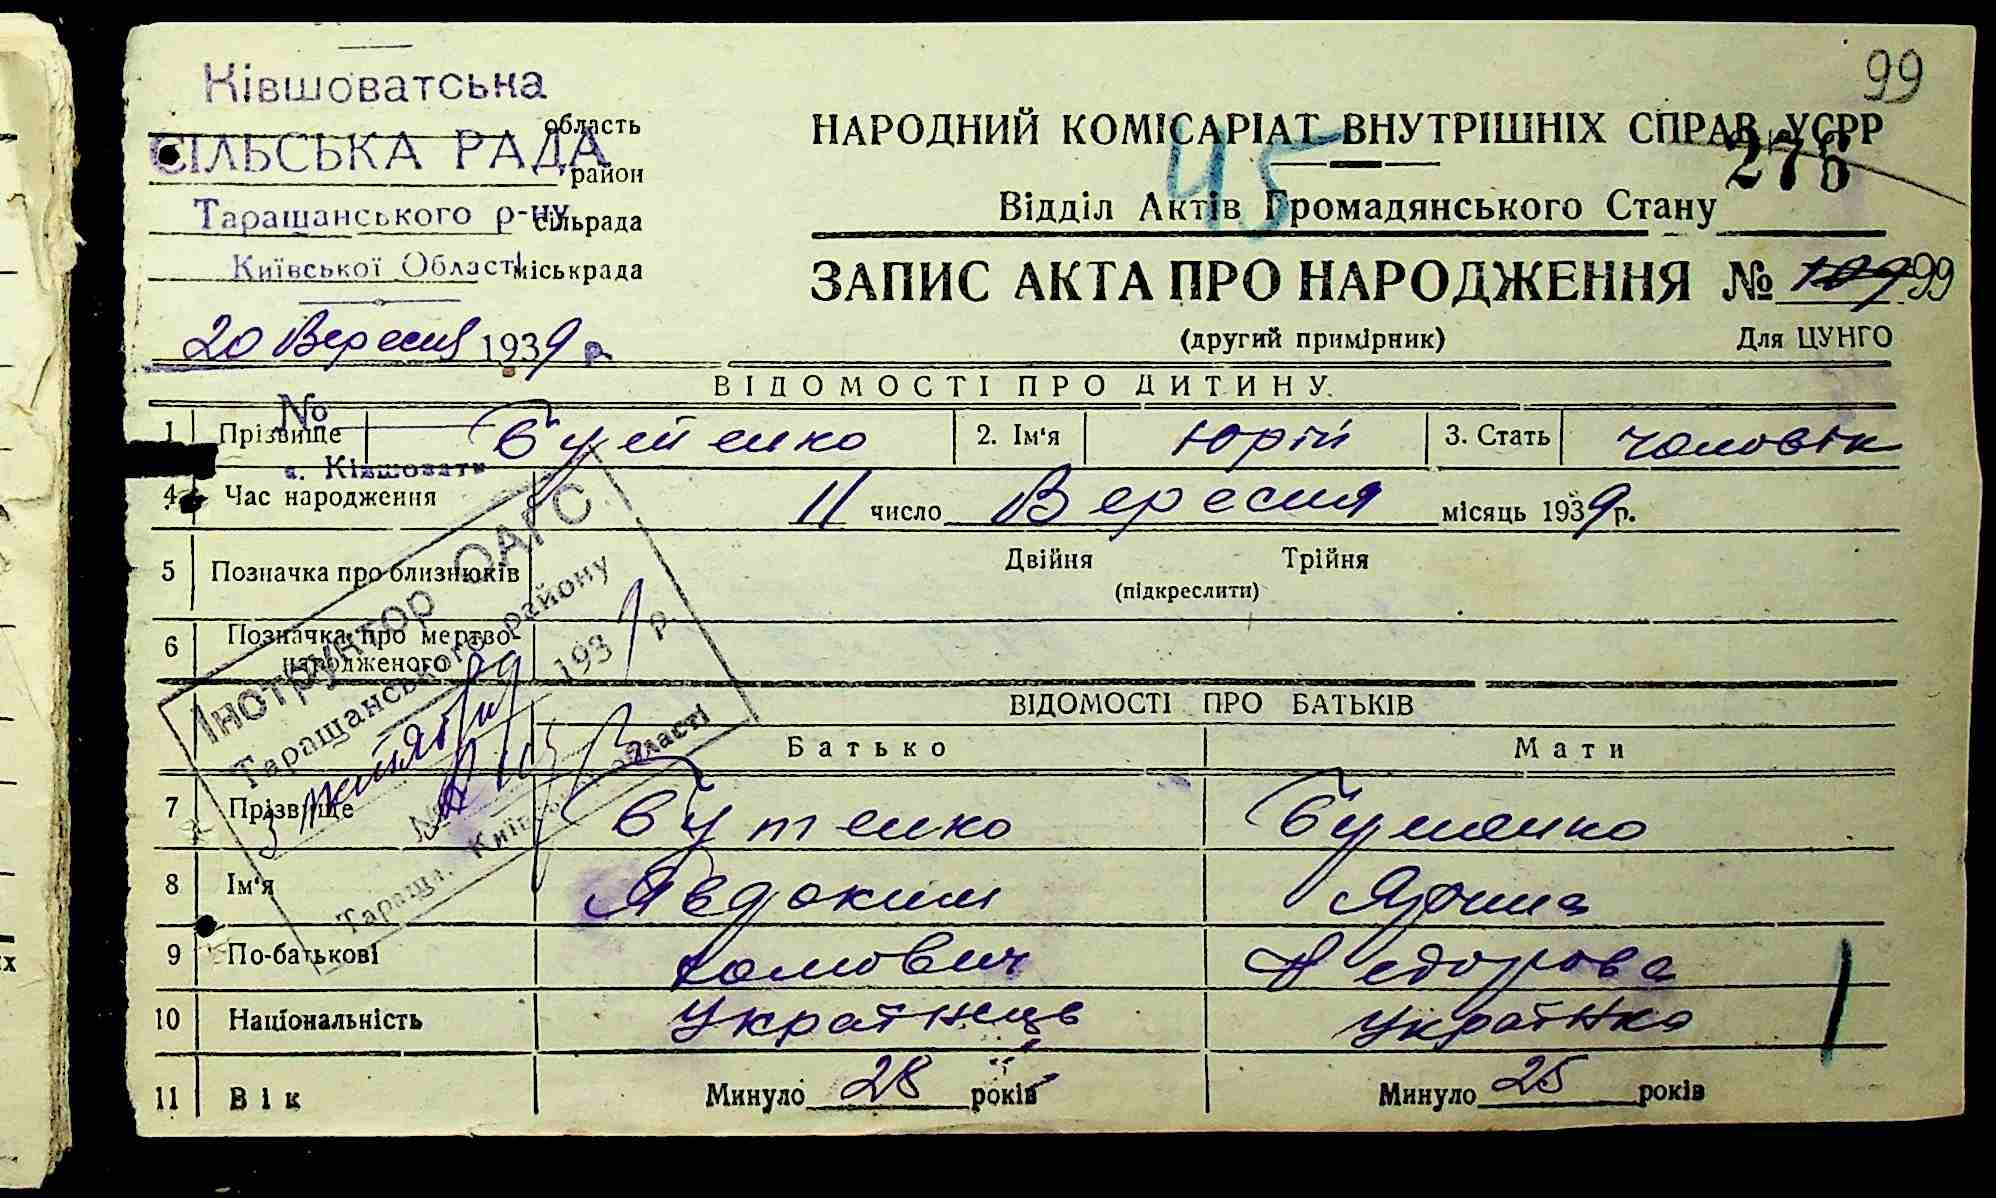 99
Ківшоватська
область
СІЛЬСЬКА РАДА
район
Таращанського р-ну
сільрада
Київської Області
міськрада
НАРОДНИЙ КОМІСАРІАТ ВНУТРІШНІХ СПРАВ УСРР
45
276
Відділ Актів Громадянського Стану
ЗАПИС АКТА ПРО НАРОДЖЕННЯ № 109 99
20 Вересня 1939 р.
(другий примірник)
Для ЦУНГО
ВІДОМОСТІ ПРО ДИТИНУ.
№
1 Прізвище Бутенко 2. Ім'я Юрій 3. Стать чоловік
с. Ківшовати
4 Час народження 11 число Вересня місяць 1939 р.
5 Позначка про близнюків Двійня Трійня
(підкреслити)
6 Позначка про мертво-
народженого
Інструктор ОАГС
Таращанського району
193 р.
№
Тараща, Київської області
ВІДОМОСТІ ПРО БАТЬКІВ
Батько Мати
7 Прізвище Бутенко Бутенко
8 Ім'я Явдоким Ярина
9 По-батькові Хомович Федорова
10 Національність Українець Українка
11 Вік Минуло 28 років Минуло 25 років